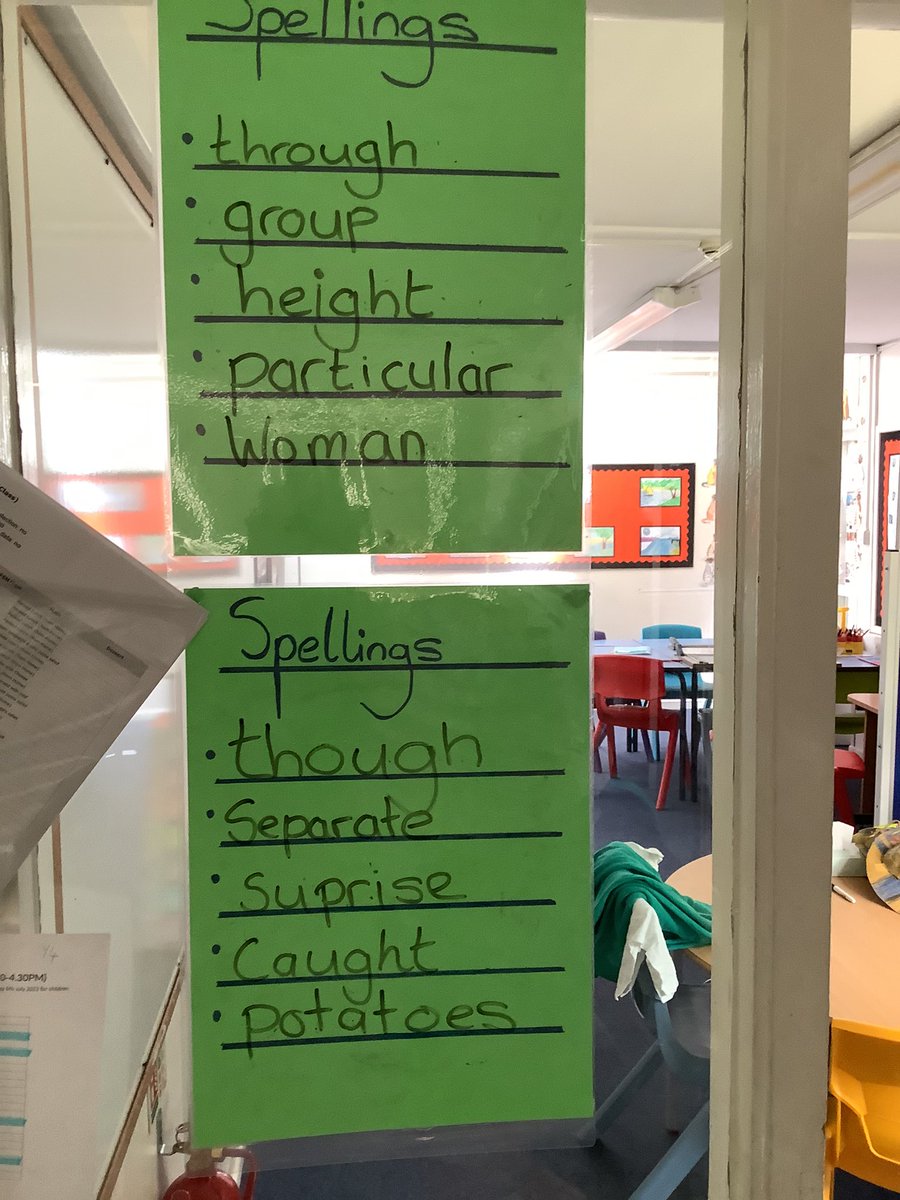 Spellings
• through
• group
• height
• particular
• Woman
Class)
Spellings
• though
• Separate
• Suprise
• Caught
• potatoes
0-4.30PM)